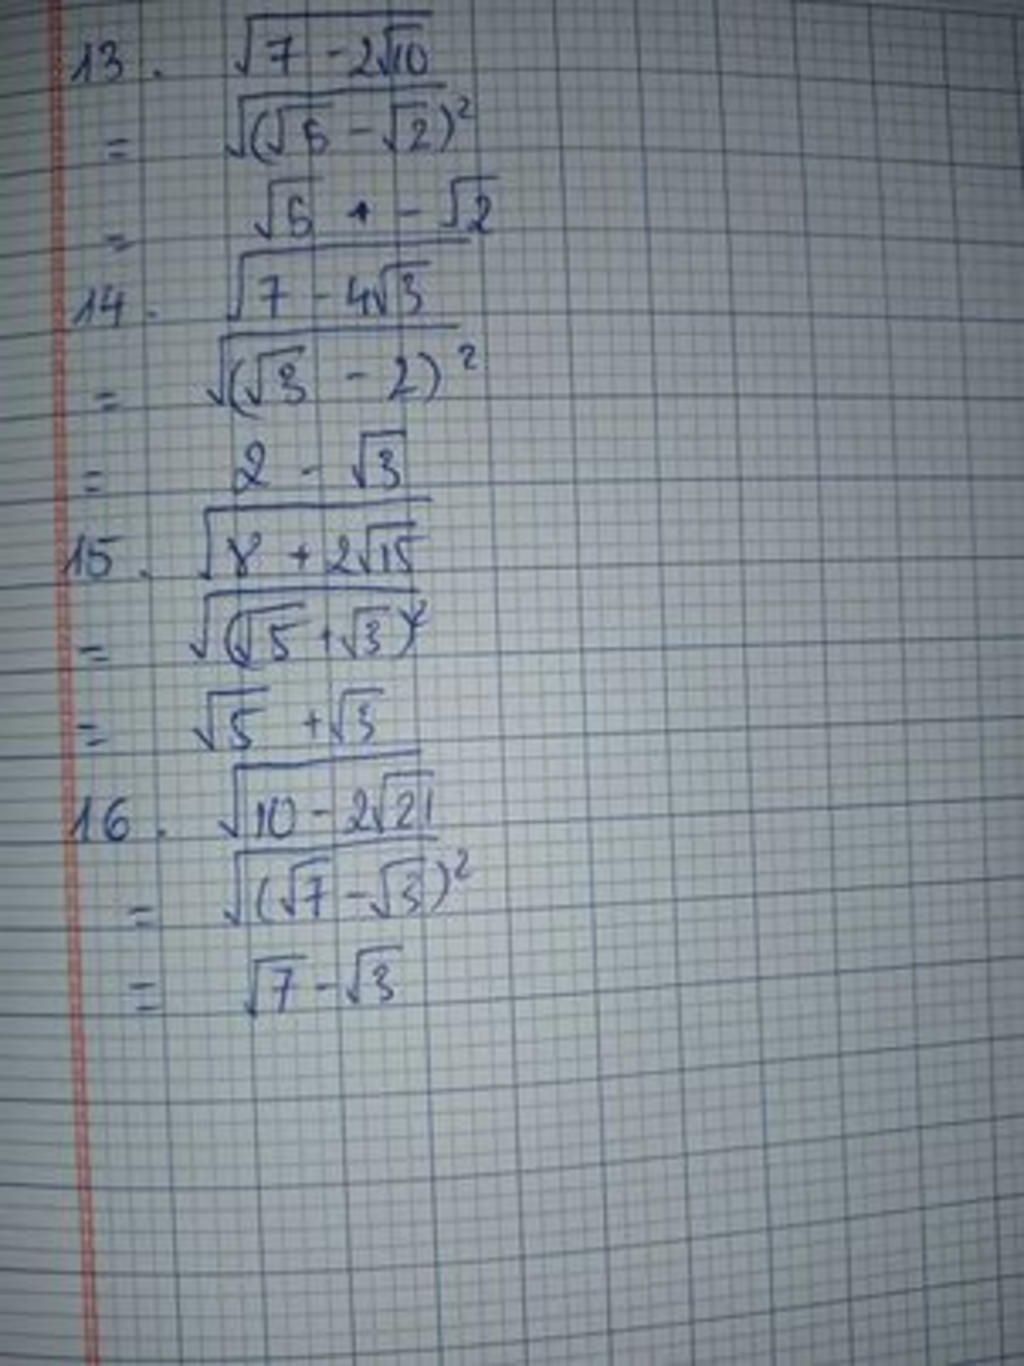 13. √(7 - 2√10)
= √((√5 - √2)²)
= √5 + - √2
14. √(7 - 4√3)
= √((√3 - 2)²)
= 2 - √3
15. √(8 + 2√15)
= √((√5 + √3)²)
= √5 + √3
16. √(10 - 2√21)
= √((√7 - √3)²)
= √7 - √3